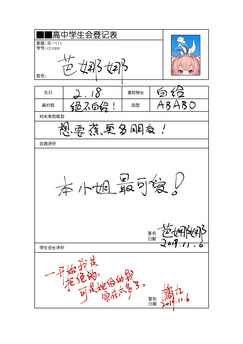 ■■高中学生会登记表
姓名： 芭娜娜
生日 2.18 爱好特长 白给
座右铭 绝不白给！ 血型 ABABO
对未来的规划
想要蕉更多朋友！
自我评价
本小姐最可爱！
签名 芭娜娜
日期 2019.11.6
学生会长评价
一开始我是
拒绝的，
可是她给的
实在太多了。
签名
日期 2019.11.6